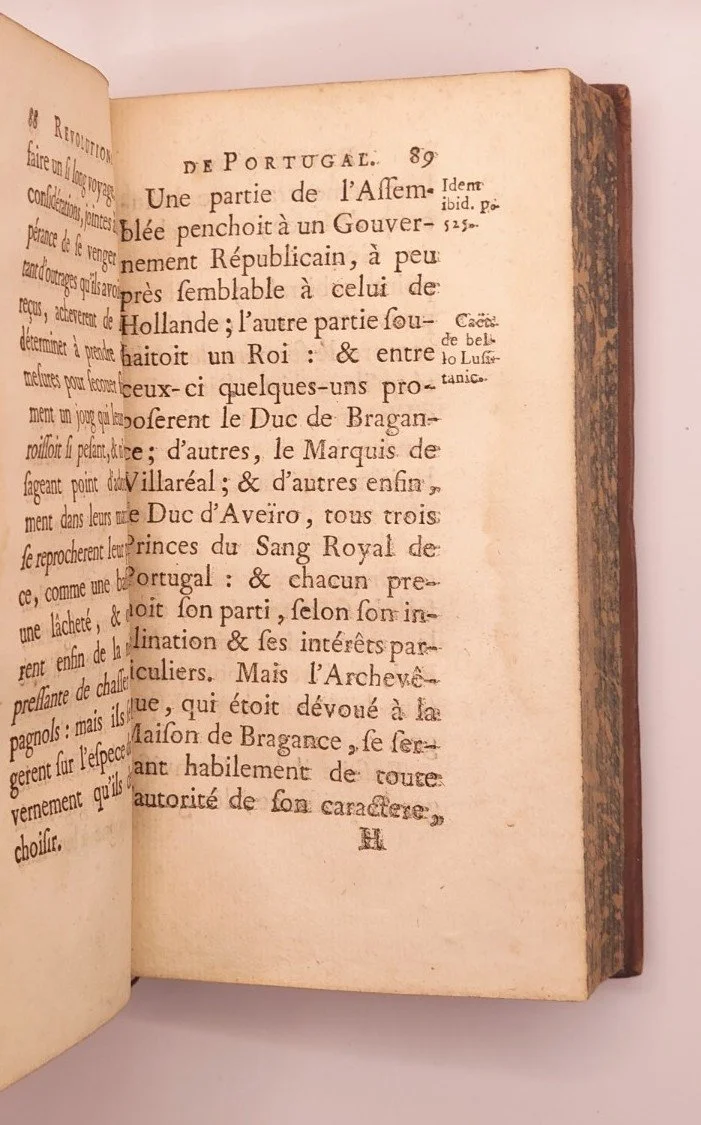 88 REVOLUTION
faire un ſi long voyage,
conſidérations, jointes à
pérance de ſe venger
tant d'outrages qu'ils avoi
reçus, acheverent de
déterminer à prendre
meſures pour ſecouer
ment un joug qui leur
roiſſoit ſi peſant, &
ſageant point
ment dans leurs
ſe reprocherent leur
ce, comme une
une lâcheté, &
rent enfin de la
preſſante de chaſſe
pagnols : mais ils
gerent ſur l'eſpece
vernement qu'ils
choiſir.
DE PORTUGAL. 89
Une partie de l'Aſſem-
blée penchoit à un Gouver-
nement Républicain, à peu
près ſemblable à celui de
Hollande ; l'autre partie ſou-
haitoit un Roi : & entre
ceux-ci quelques-uns pro-
poſerent le Duc de Bragan-
ce ; d'autres, le Marquis de
Villaréal ; & d'autres enfin,
le Duc d'Aveïro, tous trois
Princes du Sang Royal de
Portugal : & chacun pre-
noit ſon parti, ſelon ſon in-
clination & ſes intérêts par-
ticuliers. Mais l'Archevê-
que, qui étoit dévoué à la
Maiſon de Bragance, ſe ſer-
vant habilement de toute
l'autorité de ſon caractere,
H
Idem
ibid. p.
525.
Caët.
de bel-
lo Luſi-
tanic.